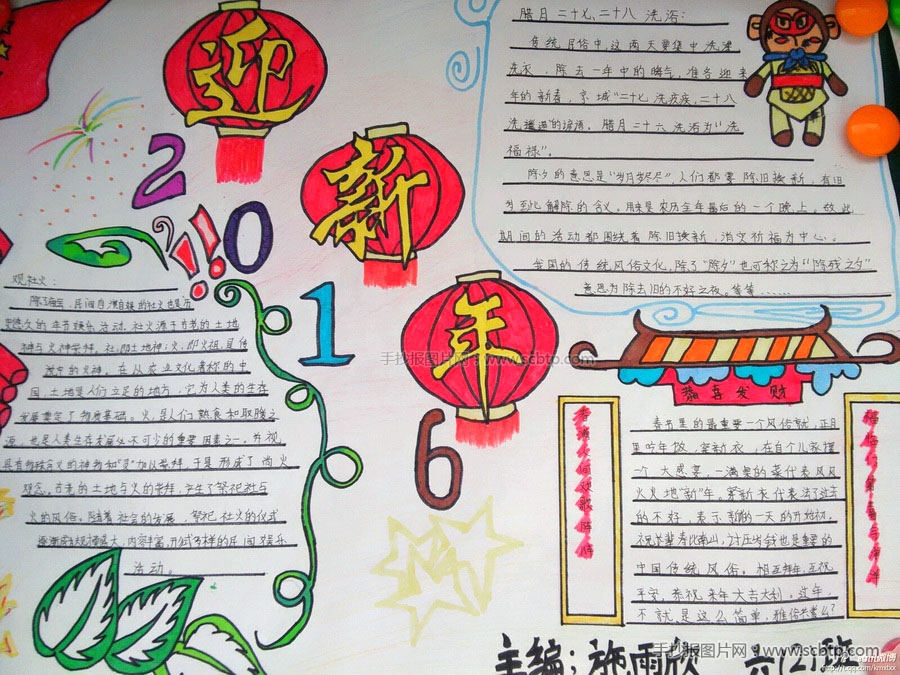 迎
新
年
2
0
1
6
腊月二十七、二十八 洗浴:
传统民俗中,这两天要集中洗澡
洗衣,除去一年中的晦气,准备迎来
年的新春,京城"二十七洗疚疾,二十八
洗邋遢"的谚语。腊月二十六洗浴为"洗
福禄"。
除夕的意思是"岁月岁尽",人们都要除旧换新,有旧
岁到此解除的含义。用来是农历全年最后的一个晚上。故此
期间的活动都围绕着除旧换新,消灾祈福为中心。
我国的传统风俗文化,除了"除夕"也可称之为"除残之夕"
意思为除去旧的不好之夜。等等……
观社火:
悠久的年节娱乐活动。社火源于古老的土地
神与火神崇拜。社,即土地神;火,即火祖,是传
说中的火神。在以农业文化著称的中
国,土地是人们立足的地方,它为人类的生存
发展奠定了物质基础。火,是人们熟食和取暖之
源,也是人类生存发展必不可少的重要因素之一。并视
具有特殊含义的神物和"灵"加以崇拜,于是形成了尚火
观念。古老的土地与火的崇拜,产生了祭祀社与
火的风俗。随着社会的发展,祭祀社火的仪式
逐渐成为规模盛大,内容丰富,形式多样的民间娱乐
活动。
恭喜发财
春节里的最重要一个风俗就,正月
里吃年饭,穿新衣,在自个儿家摆
一个大盛宴,一满桌的菜代表风风
火火地"新"年。穿新衣代表法了过去
的不好,表示新的一天的开始初。
祝长辈寿比南山,讨压岁钱也是重要的
中国传统风俗。相互拜年,互祝
平安,恭祝来年大吉大利。这年
不就是这么简单,雅俗来着么?
主编:施雨欣 六(2)班
手抄报图片网:www.scbto.com
手抄报图片网:www.scbto.com